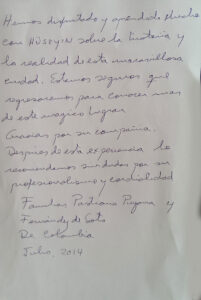 Hemos disfrutado y aprendido mucho
con HÜSEYIN sobre la historia y
la realidad de esta maravillosa
ciudad. Estamos seguros que
regresaremos para conocer mas
de este magico lugar.
Gracias por su compañia.
Despues de esta experiencia lo
recomendamos sin dudas por su
profesionalismo y cordialidad
Familias Pastrana y
Fernández de Soto
De Colombia
Julio, 2014